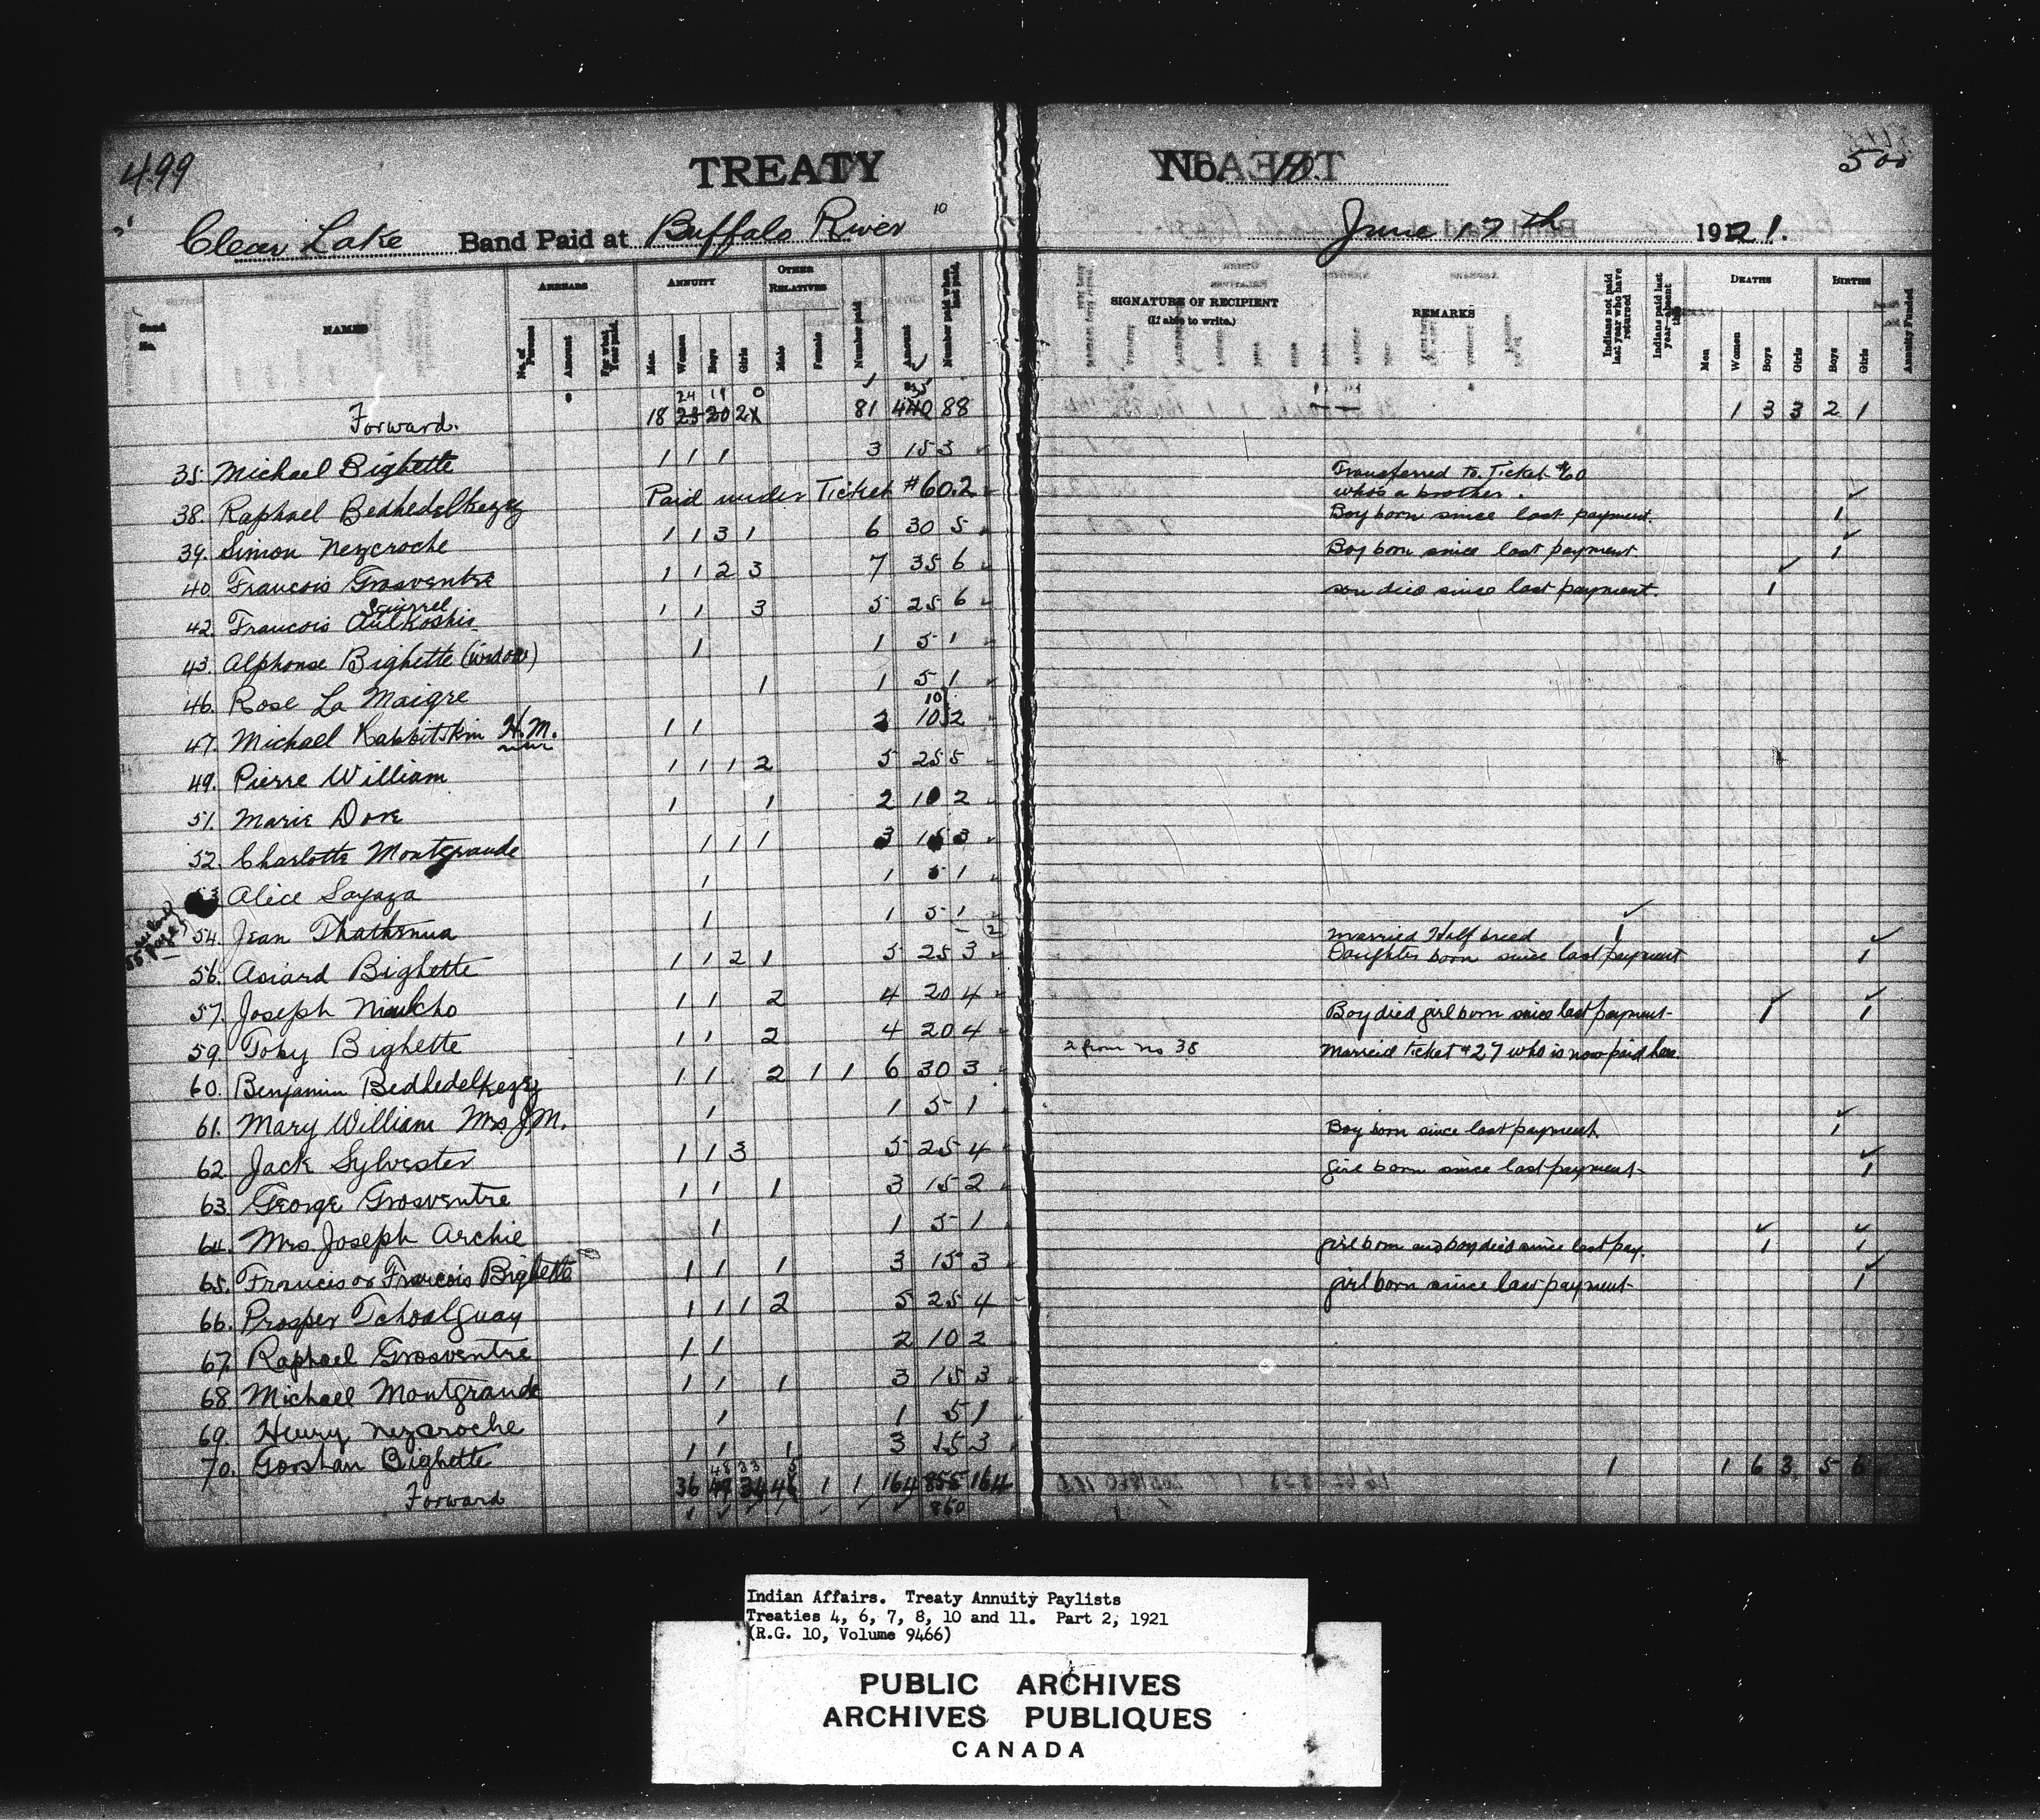 499
TREATY No. 10.
500
Clear Lake Band Paid at Buffalo River 10 June 17th 1921.
Band No. NAMES ARREARS No. of Persons Amount For what Year paid. ANNUITY Men. Women Boys Girls OTHER RELATIVES Male Female Number paid Amount Number paid when last paid. SIGNATURE OF RECIPIENT (If able to write.) REMARKS Indians not paid last year who have returned Indians paid last year absent this DEATHS Men Women Boys Girls BIRTHS Boys Girls Annuity Funded
24 19 0
Forward. 18 23 20 21 81 440 88 1 3 3 2 1
35. Michael Bighette 1 1 1 3 15 3
38. Raphael Bedhedelkezy Paid under Ticket #60. 2 Transferred to Ticket #60 who's a brother.
39. Simon Nezcroche 1 1 3 1 6 30 5 Boy born since last payment. 1
40. Francois Grosventre 1 1 2 3 7 35 6 Boy born since last payment 1
Squirrel
42. Francois Dulkoshis 1 1 3 5 25 6 son died since last payment. 1
43. Alphonse Bighette (widow) 1 1 5 1
46. Rose La Maigre 1 1 5 1
10
47. Michael Rabbitskin H.M. 1 1 2 10 2
49. Pierre William 1 1 1 2 5 25 5
51. Marie Dore 1 1 2 10 2
52. Charlotte Montgrande 1 1 1 3 15 3
53 Alice Sayaza 1 1 5 1
54. Jean Thathenua 1 1 5 1
55. page
56. Asiard Bighette 1 1 2 1 5 25 3 2 married Half breed 1
Daughter born since last payment 1
57. Joseph Niulcho 1 1 2 4 20 4 Boy died girl born since last payment 1 1
59. Toby Bighette 1 1 2 4 20 4 2 from No 38 Married ticket #27 who is now paid here.
60. Benjamin Bedhedelkezy 1 1 2 1 1 6 30 3
61. Mary William Mrs J.M. 1 1 5 1
62. Jack Sylvester 1 1 3 5 25 4 Boy born since last payment 1
63. George Grosventre 1 1 1 3 15 2 girl born since last payment 1
64. Mrs. Joseph Archie 1 1 5 1
65. Francis or Francois Bighette 1 1 1 3 15 3 girl born and boy died since last pay. 1 1
66. Prosper Tchoalguay 1 1 1 2 5 25 4 girl born since last payment 1
67. Raphael Grosventre 1 1 2 10 2
68 Michael Montgrande 1 1 1 3 15 3
69. Henry Nezcroche 1 1 5 1
70. Gorshan Bighette 1 1 1 3 15 3
48 33 5
Forward 36 49 34 46 1 1 164 855 164 1 1 6 3 5 6
860
Indian Affairs. Treaty Annuity Paylists
Treaties 4, 6, 7, 8, 10 and 11. Part 2, 1921
(R.G. 10, Volume 9466)
PUBLIC ARCHIVES
ARCHIVES PUBLIQUES
CANADA